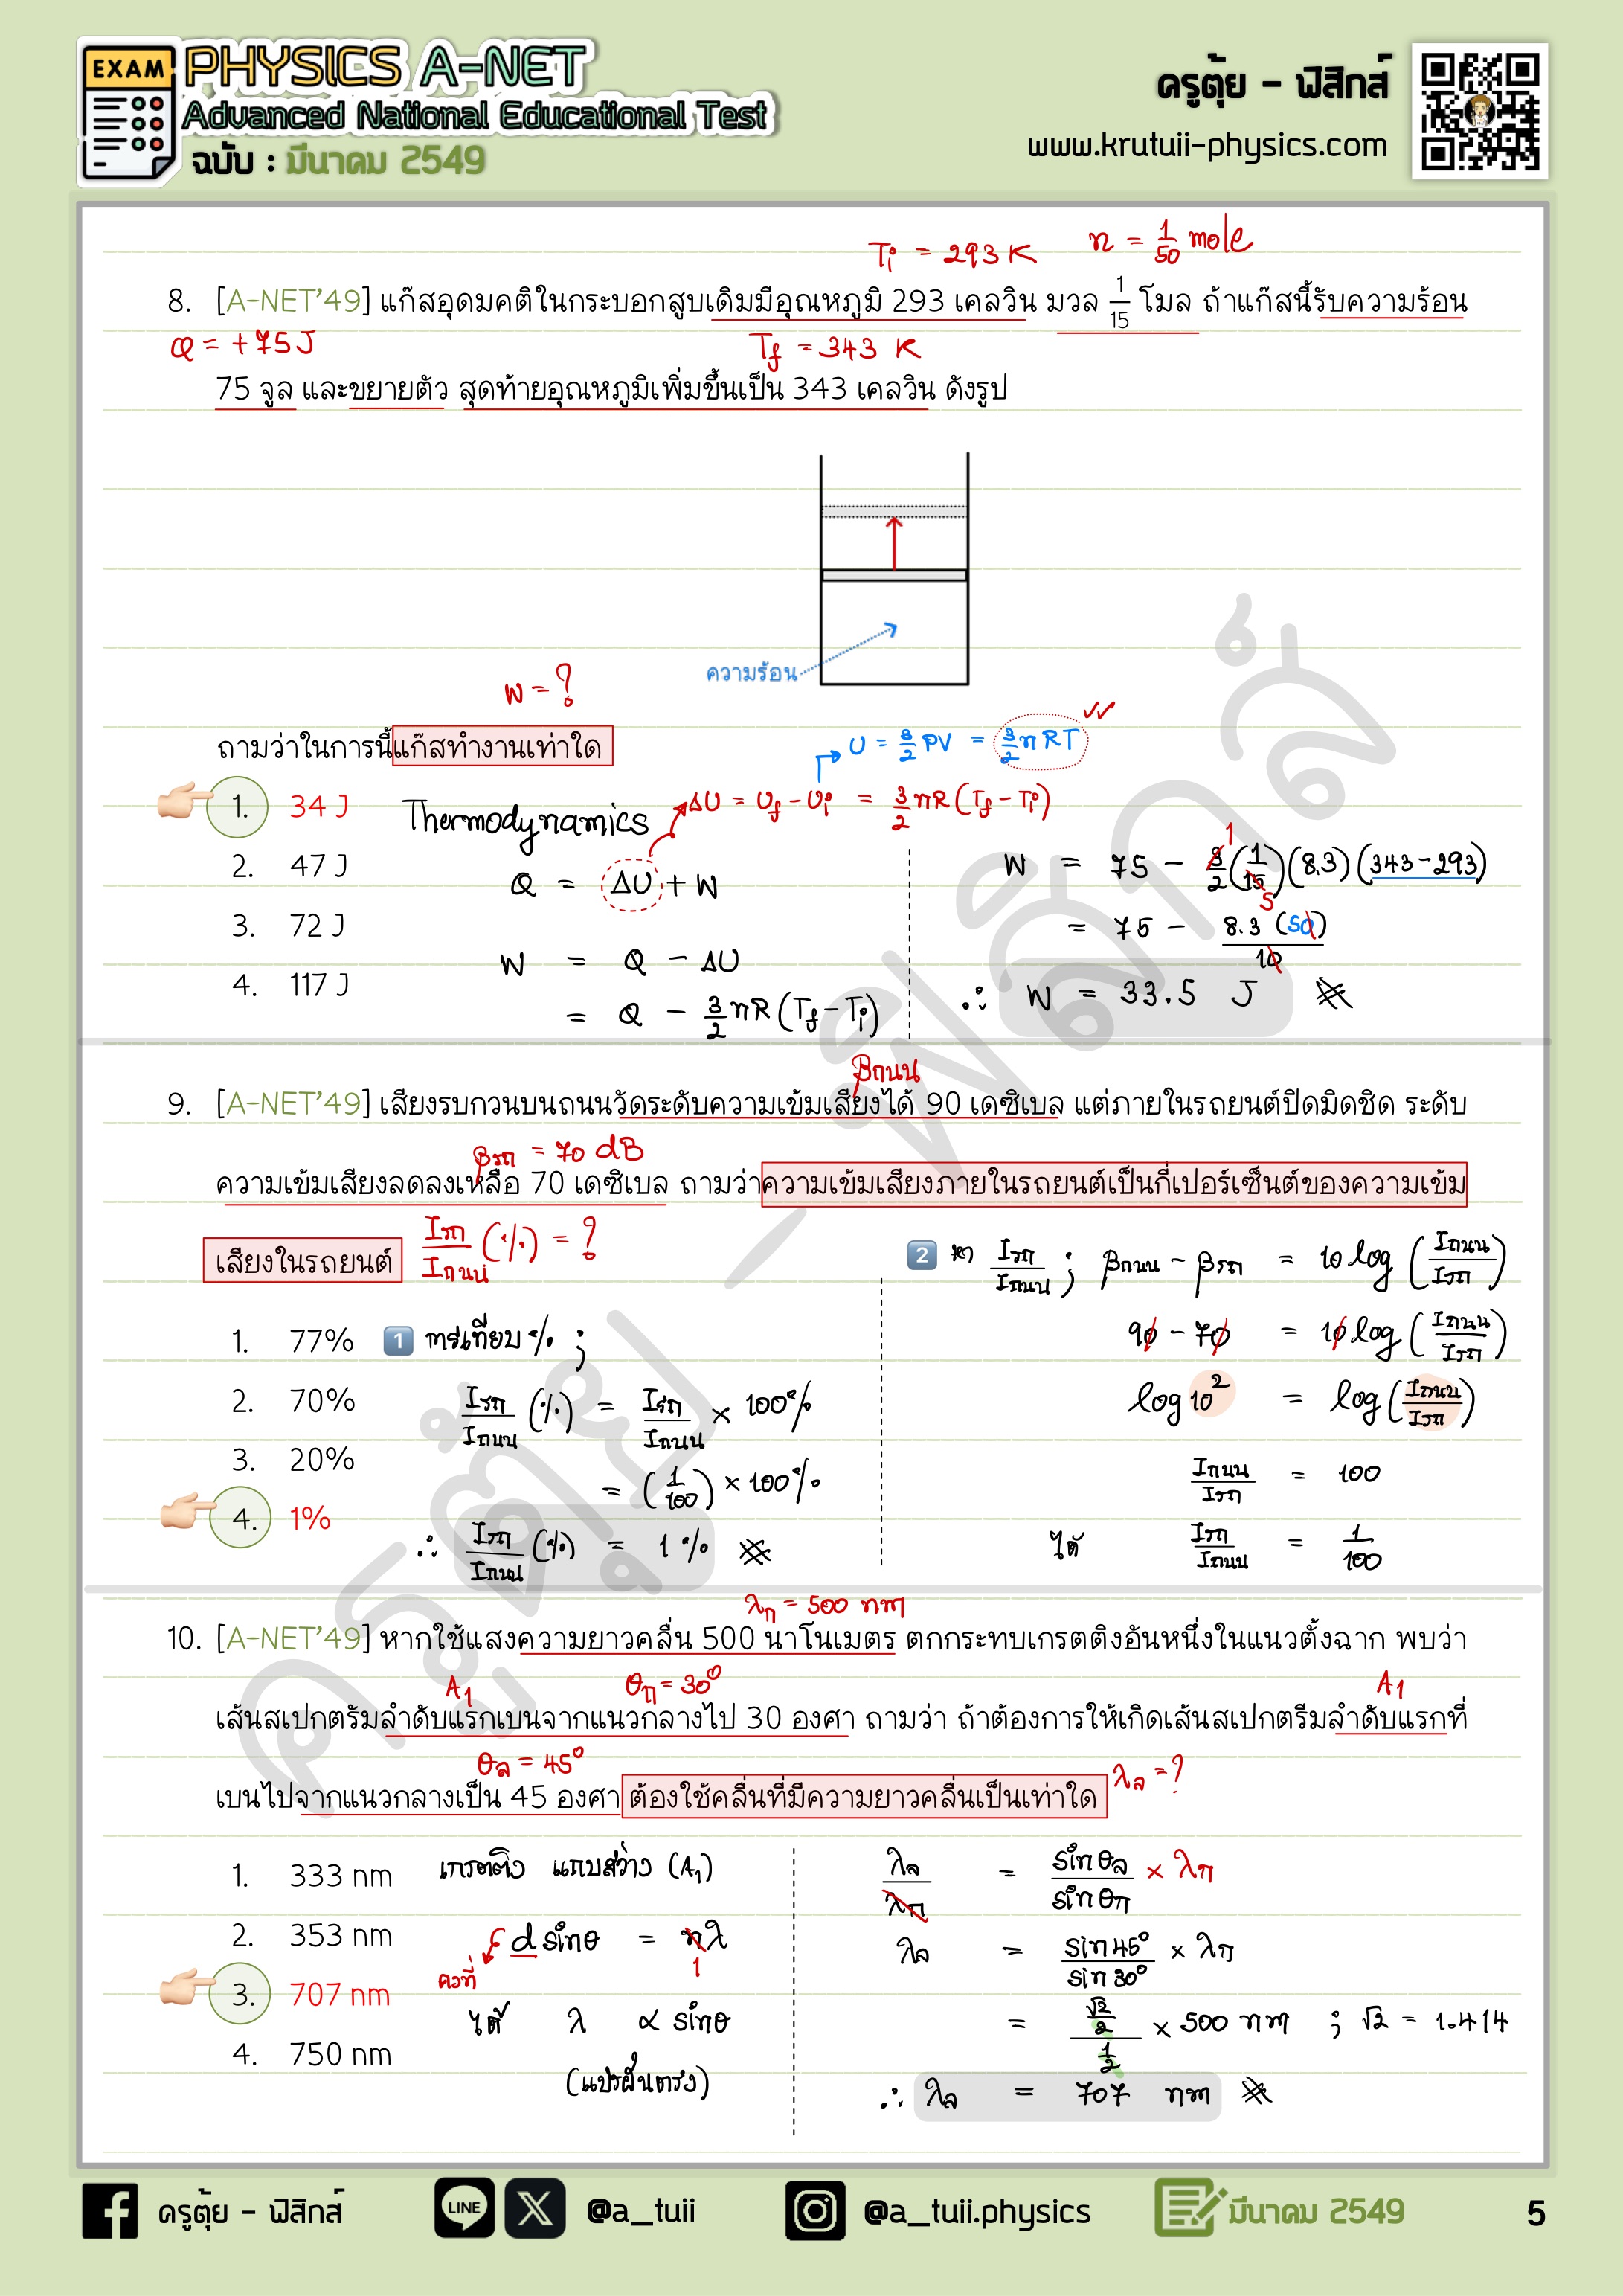 EXAM
PHYSICS A-NET
Advanced National Educational Test
ฉบับ : มีนาคม 2549
ครูตุ้ย - ฟิสิกส์
www.krutuii-physics.com
Ti = 293 K n = 1/50 mole
8. [A-NET'49] แก๊สอุดมคติในกระบอกสูบเดิมมีอุณหภูมิ 293 เคลวิน มวล 1/15 โมล ถ้าแก๊สนี้รับความร้อน
Q = +75 J Tf = 343 K
75 จูล และขยายตัว สุดท้ายอุณหภูมิเพิ่มขึ้นเป็น 343 เคลวิน ดังรูป
ความร้อน
W = ?
ถามว่าในการนี้แก๊สทำงานเท่าใด
U = 3/2 PV = 3/2 nRT
1. 34 J
2. 47 J
3. 72 J
4. 117 J
Thermodynamics
ΔU = Uf - Ui = 3/2 nR(Tf - Ti)
Q = ΔU + W
W = Q - ΔU
= Q - 3/2 nR(Tf - Ti)
W = 75 - 3/2 (1/15)(8.3)(343-293)
1
5
= 75 - 8.3 (50)/10
∴ W = 33.5 J
βถนน
9. [A-NET'49] เสียงรบกวนบนถนนวัดระดับความเข้มเสียงได้ 90 เดซิเบล แต่ภายในรถยนต์ปิดมิดชิด ระดับ
βรถ = 70 dB
ความเข้มเสียงลดลงเหลือ 70 เดซิเบล ถามว่าความเข้มเสียงภายในรถยนต์เป็นกี่เปอร์เซ็นต์ของความเข้ม
เสียงในรถยนต์ Iรถ/Iถนน (%) = ?
1. 77%
2. 70%
3. 20%
4. 1%
1 การเทียบ % ;
Iรถ/Iถนน (%) = Iรถ/Iถนน × 100%
= (1/100) × 100%
∴ Iรถ/Iถนน (%) = 1 %
2 หา Iรถ/Iถนน ; βถนน - βรถ = 10 log (Iถนน/Iรถ)
90 - 70 = 10 log (Iถนน/Iรถ)
log 10² = log (Iถนน/Iรถ)
Iถนน/Iรถ = 100
ได้ Iรถ/Iถนน = 1/100
λก = 500 nm
10. [A-NET'49] หากใช้แสงความยาวคลื่น 500 นาโนเมตร ตกกระทบเกรตติงอันหนึ่งในแนวตั้งฉาก พบว่า
A1 θก = 30° A1
เส้นสเปกตรัมลำดับแรกเบนจากแนวกลางไป 30 องศา ถามว่า ถ้าต้องการให้เกิดเส้นสเปกตรีมลำดับแรกที่
θล = 45°
เบนไปจากแนวกลางเป็น 45 องศา ต้องใช้คลื่นที่มีความยาวคลื่นเป็นเท่าใด λล = ?
1. 333 nm
2. 353 nm
3. 707 nm
4. 750 nm
เกรตติง แถบสว่าง (A1)
d sinθ = nλ
คงที่ 1
ได้ λ ∝ sinθ
(แปรผันตรง)
λล/λก = sinθล/sinθก × λก
λล = sin45°/sin30° × λก
= (√2/2)/(1/2) × 500 nm ; √2 = 1.414
∴ λล = 707 nm
ครูตุ้ย - ฟิสิกส์
ครูตุ้ย - ฟิสิกส์
LINE
@a_tuii
@a_tuii.physics
มีนาคม 2549
5